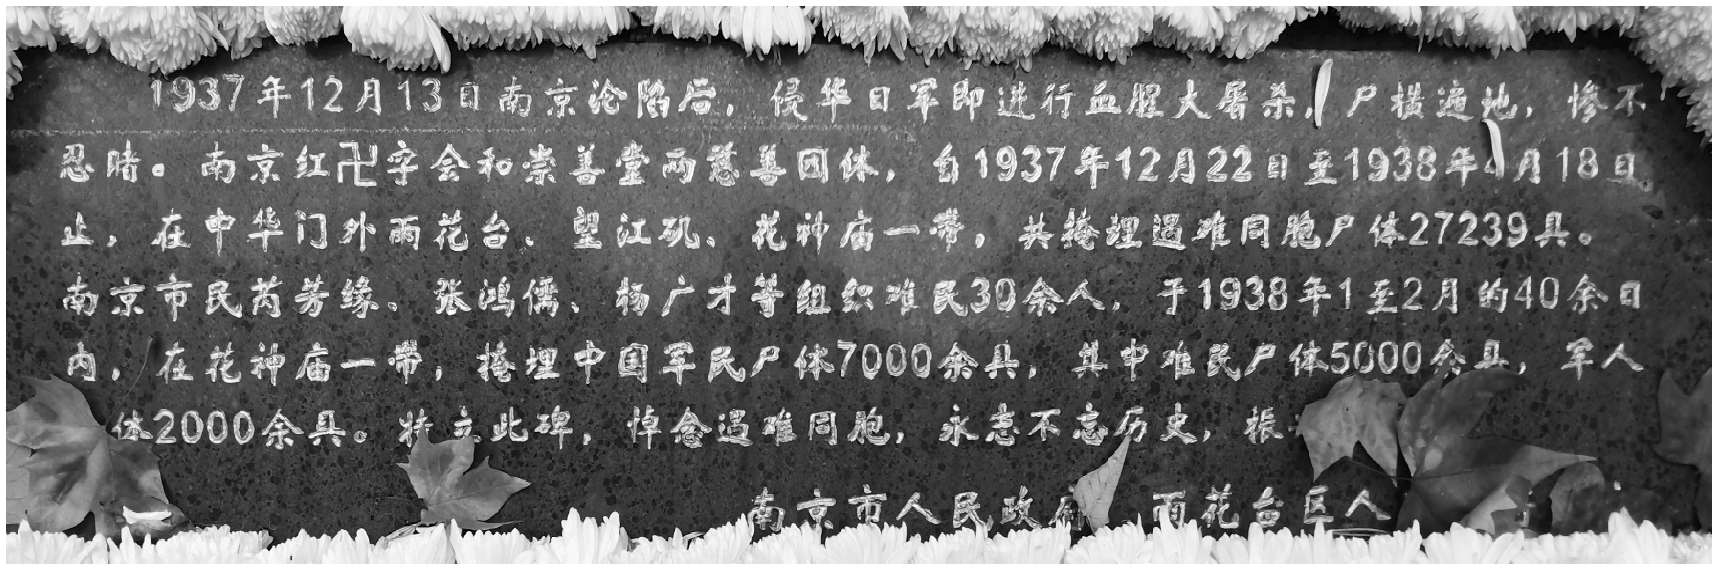 1937年12月13日南京沦陷后，侵华日军即进行血腥大屠杀，尸横遍地，惨不
忍睹。南京红卍字会和崇善堂两慈善团体，自1937年12月22日至1938年4月18日
止，在中华门外雨花台、望江矶、花神庙一带，共掩埋遇难同胞尸体27239具。
南京市民芮芳缘、张鸿儒、杨广才等组织难民30余人，于1938年1至2月的40余日
内，在花神庙一带，掩埋中国军民尸体7000余具，其中难民尸体5000余具，军人
体2000余具。特立此碑，悼念遇难同胞，永志不忘历史，振
南京市人民政府 雨花台区人